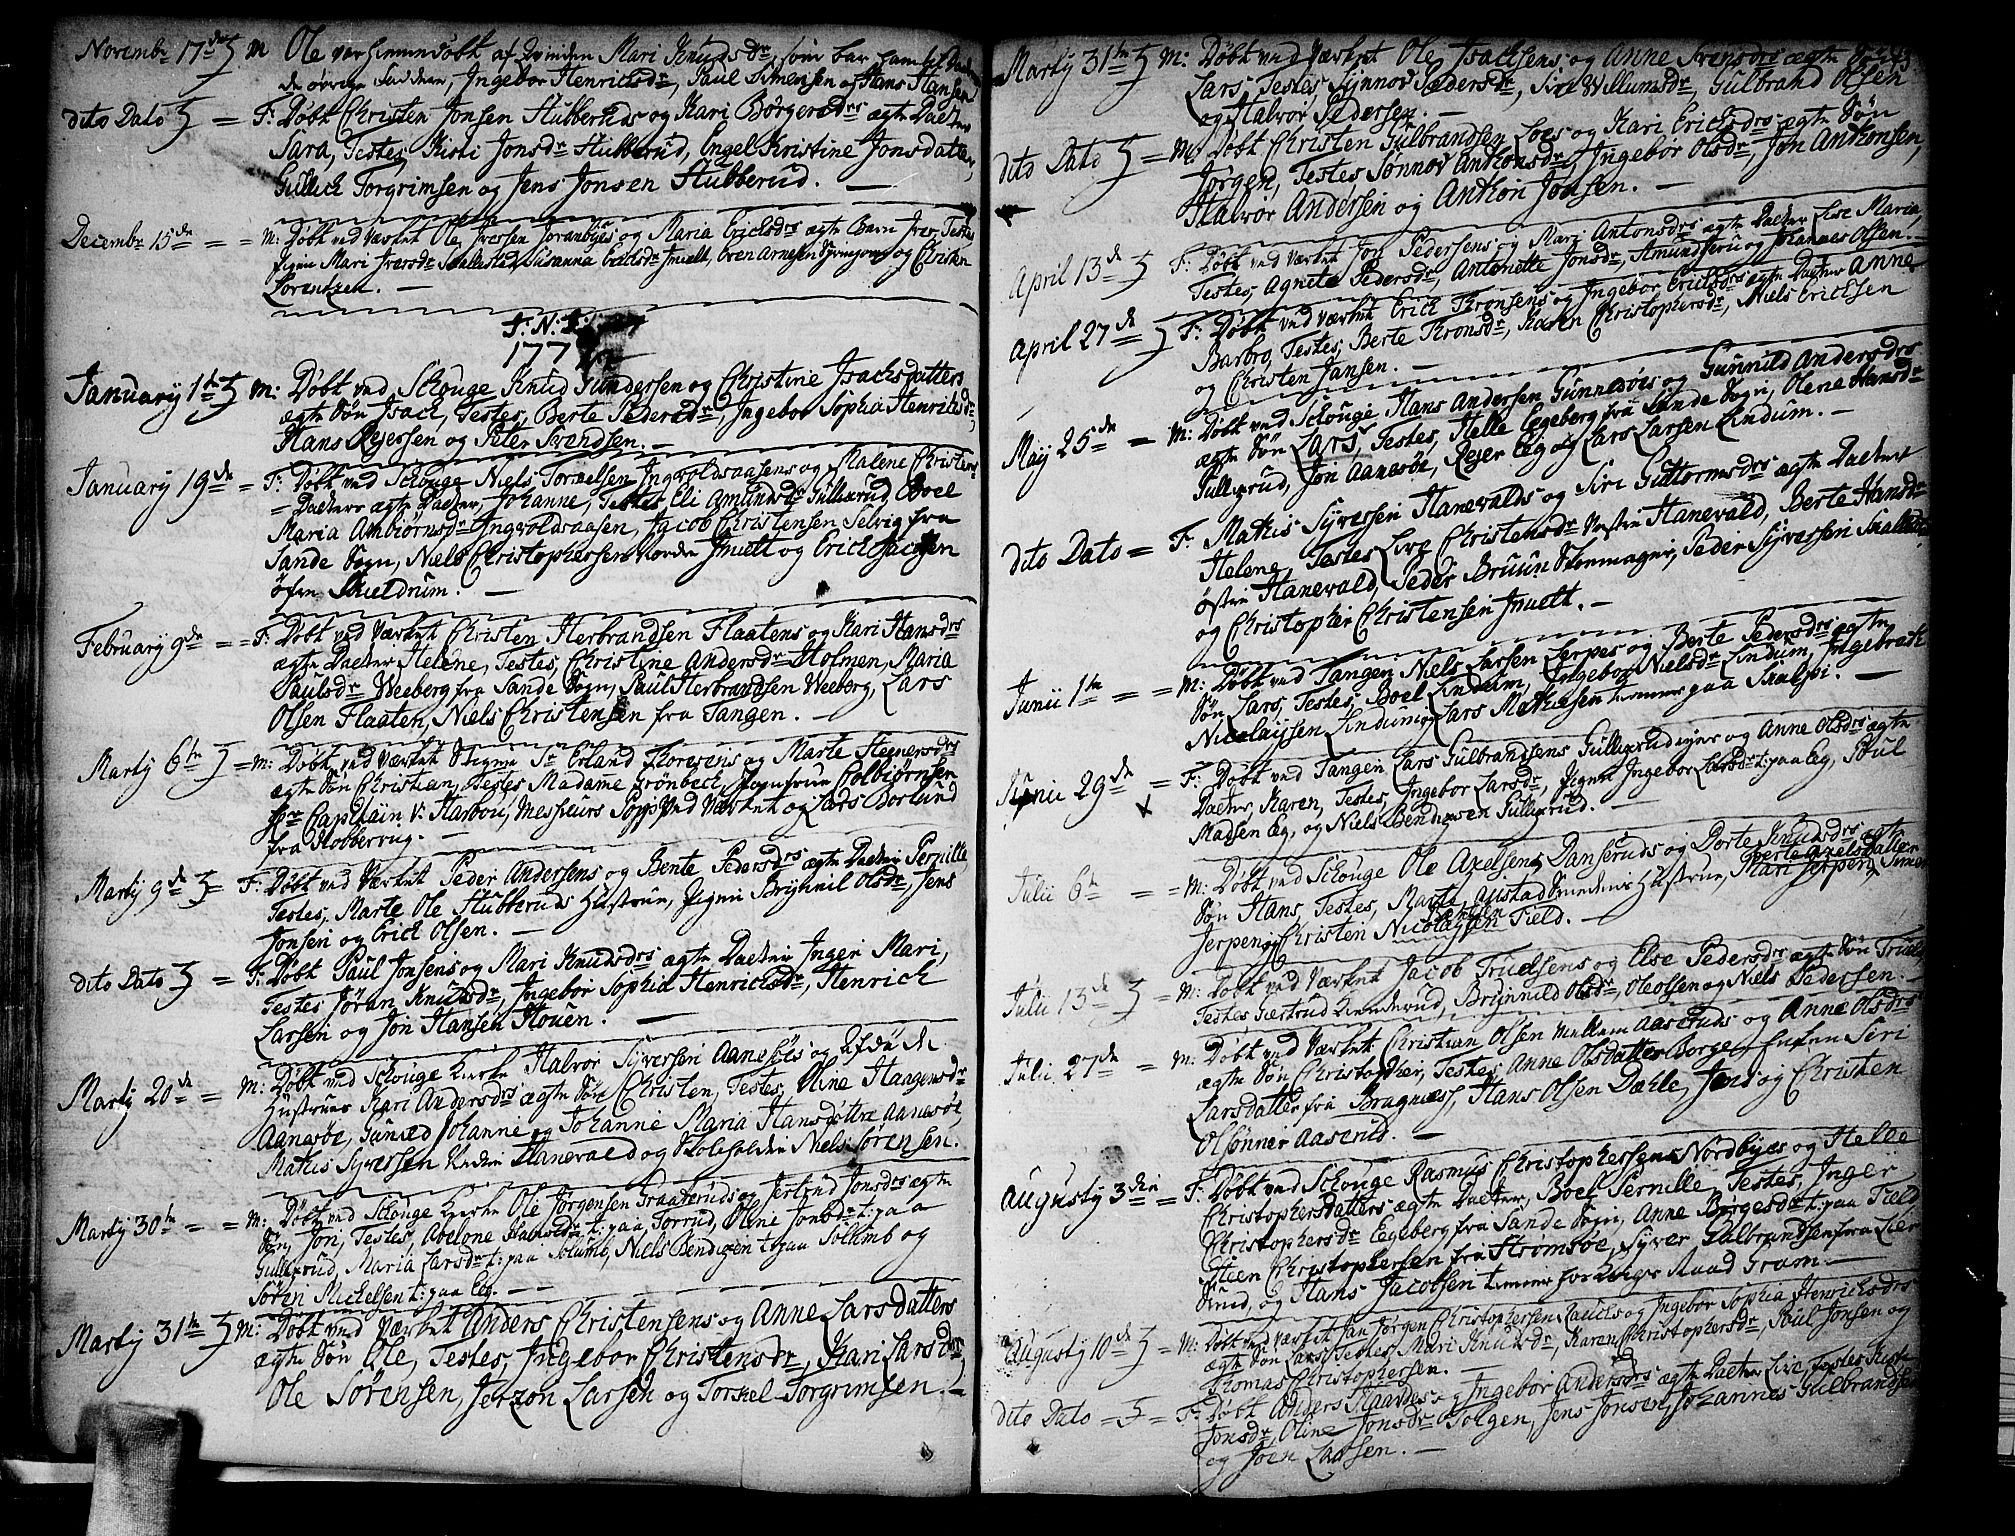 Novembr 17de M Ole var hiemmedöbt af Qvinden Mari Knudsdr, som bar samt
de övrige Faddere, Ingebor Henrichsdr, Paul Simensen og Hans Hansen
dito Dato = F: Döbt Christen Jonsen Stubberuds og Kari Börgersdrs ægte Datter
Sara, Testes, Kisti Jonsdr Stubberud, Engel Kristine Jonsdatter,
Gullich Torgrimsen og Jens Jonsen Stubberud. —
Decembr 15de = = M: Döbt ved Værket Ole Iversen Joranbyes og Maria Erichsdrs ægte Barn Iver, Testes
Pigen Mari Iversdr, Susanna Erichsdr Smelt, Sven Arnesen og Christen
Lorentzen. —
F: N: I:
177
January 1te M: Döbt ved Schouge Knud Gundersen og Christine Isachsdatters
ægte Sön Isach, Testes, Berte Pedersdr, Ingebor Sophia Henrichsdr,
Hans Rejersen og Peter Svendsen. —
January 19de = F: Döbt ved Schouge Niels Toraelsen Ingvoldsaasens og Malene Christens
= Datters ægte Datter, Johanne, Testes Eli Amundsdr Gullerud, Boel
Maria Ambiörnsdr Ingvoldsaasen, Jacob Christensen Selvig fra
Sande Sogn, Niels Christophersen Nordre Smelt og Erich Jacobsen
öfre Skieldrum. —
February 9de = = F: Döbt ved Værket Christen Herbrandsen Flaatens og Kari Hansdrs
ægte Datter Helene, Testes, Christine Andersdr Holmen, Maria
Paulsdr Weeberg fra Sande Sogn, Paul Herbrandsen Weeberg, Lars
Olsen Flaaten, Niels Christensen fra Tangen. —
Martij 6te = M: Döbt ved Værket Sr Erland Florerens og Marte Stegnersdrs
ægte Sön Christian, Testes Madame Grönbech, Jomfrue Colbiörnsen
Hr Capitain v: Harbou, Messieurs Sopp ved Værket og Lars Borlund
fra Hobberrug. —
Martij 9de = F: Döbt ved Værket Peder Andersens og Bente Pedersdrs ægte Datter Pernille,
Testes, Marte Ole Stubberuds Hustrue, Pigen Brynnil Olsdr, Jens
Jonsen og Erich Olsen. —
dito Dato = F: Döbt Paul Jonsens og Mari Knudsdrs ægte Datter Inger Mari,
Testes Jöran Knudsdr, Ingebor Sophia Henrichsdr, Henrich
Larsen og Jon Hansen Houen. —
Martij 20de = M: Döbt ved Schouge Kirke Halvor Syversen Aanesöes og Afdöde
Hustrues Kari Andersdrs ægte Sön Christen, Testes, Oline Haagensdr
Aanesöe, Gunild Johanne og Johanne Maria Hansdöttre Aanesöe,
Mathis Syversen Nedre Hanevald og Skoleholder Niels Sörensen.
Martij 30te = = M: Döbt ved Schouge Kirke Ole Jörgensen Graaeruds og Jertrud Jonsdrs ægte
Sön, Jon, Testes, Abelone Hansdr t: paa Torrud, Oline Jonsdr t: paa
Gullerud, Maria Larsdr t: paa Solumb, Niels Bendixen t: paa Solumb og
Sören Michelsen t: paa Eeg. —
Martij 31te M: Döbt ved Værket Anders Christensens og Anne Larsdatters
ægte Sön Ole, Testes, Ingebor Christensdr, Kari Larsdr
Ole Sörensen, Jerzon Larsen og Torkel Torgrimsen. —
Martij 31te M: Döbt ved Værket Ole Isachsens og Anne Svensdrs ægte Sön
Lars, Testes Synnov Pedersdr, Siri Willumsdr, Gulbrand Olsen
og Halvor Pedersen. —
dito Dato = M: Döbt Christen Gulbrandsen Loes og Kari Erichsdrs ægte Sön
Jörgen, Testes Sönnov Anthonsdr, Ingebor Olsdr, Jon Anthonsen,
Halvor Andersen og Anthon Jonsen. —
April 13de F: Döbt ved Værket Jon Pedersens og Mari Antonsdrs ægte Datter Lise Maria,
Testes, Agnete Pedersdr, Antonette Jonsdr, Amund og Johannes Olsen. —
April 27de F: Döbt ved Værket Erich Thronsens og Ingebor Erichsdrs ægte Datter Anne
Barbro, Testes, Berte Thronsdr, Karen Christophersdr, Niels Erichsen
og Christen Jansen. —
Maij 25de = M: Döbt ved Schouge Hans Andersen Gunnesöes og Gunnild Andersdrs
ægte Sön Lars, Testes, Helle Eegeberg fra Sande Sogn, Olene Hansdr
Gullerud, Jon Aanesöe, Rejer Eeg og Lars Larsen Lindum. —
dito Dato = F: Mathis Syversen Hanevalds og Siri Guttormsdrs ægte Datter
Helene, Testes Live Christensdr Vestre Hanevald, Berte Hansdr
östre Hanevald, Peder Bruun Skomager, Peder Syversen
og Christopher Christensen Smelt. —
Junii 1te = = M: Döbt ved Tangen Niels Larsen Lerpes og Berte Pedersdrs ægte
Sön Lars, Testes, Boel Lindum, Ingebor Nielsdr Lindum, Ingebreth
Nicolaysen Lindum, Lars Mathiesen paa Skalpi. —
Junii 29de = F: Döbt ved Tangen Lars Gulbrandsens Gullerudeyes og Anne Olsdrs ægte
Datter, Karen, Testes, Ingebor Larsdr, Pigen Ingebor Larsdr t: paa Eeg, Poul
Madsen Eeg, og Niels Bendixsen Gullerud. —
Julii 6te = = M: Döbt ved Schouge Ole Axelsens Danseruds og Dorte Knudsdrs ægte
Sön Hans, Testes, Marte Austad Hustrue, Berte Axelsdatter Mari Jerpen, Simen
Jerpen og Christen Nicolaysen Larsen Field. —
Julii 13de = M: Döbt ved Værket Jacob Truelsens og Else Pedersdrs ægte Sön Truels,
Testes Giertrud, Brynnild Olsdr, Ole Olsen og Niels Pedersen. —
Julii 27de = M: Döbt ved Værket Christian Olsen Mellem Aaseruds og Anne Olsdrs
ægte Sön Christopher, Testes, Anne Olsdatter Borge, Enken Siri
Larsdatter fra Bragnæs, Hans Olsen Dæhle, Jens og Christen
Olsönner Aaserud. —
Augusty 3die = F: Döbt ved Schouge Rasmus Christophersens Nordbyes og Helle
Christophersdatters ægte Datter, Boel Pernille, Testes, Inger
Christophersdr Eegeberg fra Sande Sogn, Anne Börgesdr t: paa Field
Steen Christophersen fra Strömsöe, Syver Gulbrandsen fra Lier
Smed, og Hans Jacobsen tienner Raad Gram. —
Augusty 10de M: Döbt ved Værket Jan Jörgen Christophersen og Ingebor Sophia Henrichsdrs
ægte Sön Lars, Testes, Mari Knudsdr, Karen Christophersdr, Poul Jonsen og
Thomas Christophersen.
dito Dato = = F: Döbt Anders Haavdes og Ingebor Andersdrs ægte Datter Live, Testes
Jonsdr, Oline Jonsdr Tolgen, Jens Jonsen, Johannes Gulbrandsen
og Joen Larsen. —